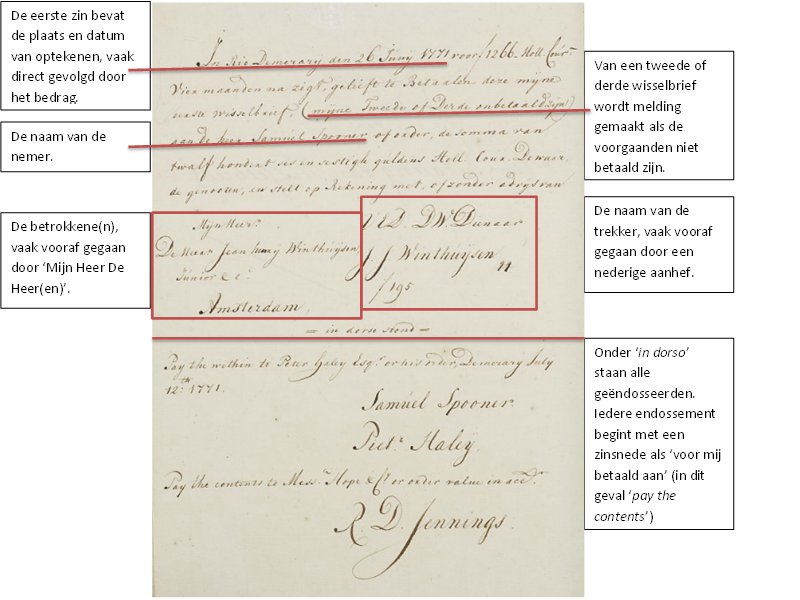 De eerste zin bevat
de plaats en datum
van optekenen, vaak
direct gevolgd door
het bedrag.
De naam van de
nemer.
De betrokkene(n),
vaak vooraf gegaan
door ‘Mijn Heer De
Heer(en)’.
In Rio Demerary den 26 Juny 1771 voor ƒ1266.- Holl. Cour.t
Vier maanden na zigt, gelieft te Betaalen deze mijne
eerste wisselbrief. (mijne Tweede of Derde onbetaald zijn)
aan de heer Samuel Spooner of order, de somma van
twalf hondert ses en sestigh guldens Holl. Cour. De waar,
de genooten, en stelt op Rekening met, of zonder advys van
Mijn Heer
De Heer Jean Winthuysen,
Junior & C.
Amsterdam.
UED. DW. Dienaar
J J Winthuysen
ƒ195
= in dorse stond =
Pay the within to Peter Haley Esq.r or his order, Demerary July
12.th 1771.
Samuel Spooner.
Piet.r Haley.
Pay the contents to Mess.rs Hope & C.o or order value in acc.t
R. D. Jennings.
Van een tweede of
derde wisselbrief
wordt melding
gemaakt als de
voorgaanden niet
betaald zijn.
De naam van de
trekker, vaak vooraf
gegaan door een
nederige aanhef.
Onder ‘in dorso’
staan alle
geëndosseerden.
Iedere endossement
begint met een
zinsnede als ‘voor mij
betaald aan’ (in dit
geval ‘pay the
contents’)